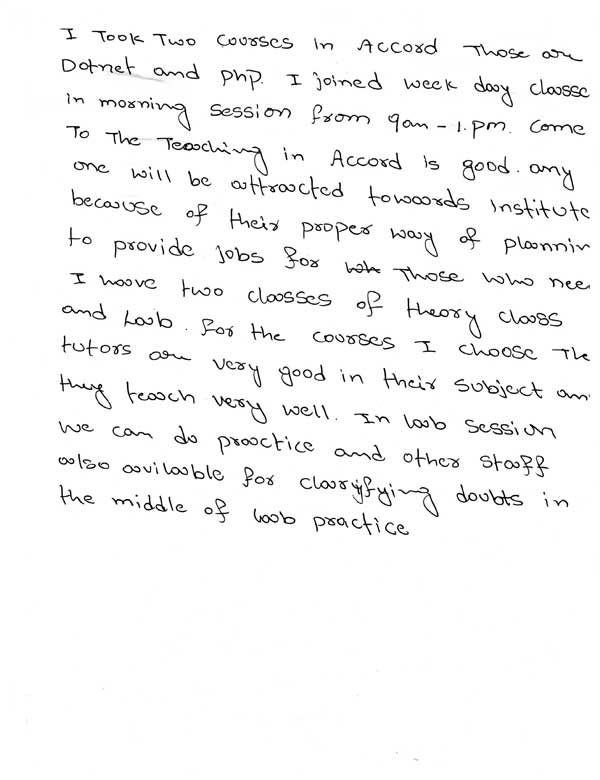 I Took Two courses in Accord Those are
Dotnet and php. I joined week day classe
in morning session from 9am - 1.pm. Come
To The Teaching in Accord is good. any
one will be attracted towards institute
because of their proper way of plannin
to provide jobs for Those who nee
I have two classes of theory class
and Lab. for the courses I choose The
tutors are very good in their subject an
they teach very well. In lab session
we can do practice and other staff
also avilable for clarifying doubts in
the middle of lab practice